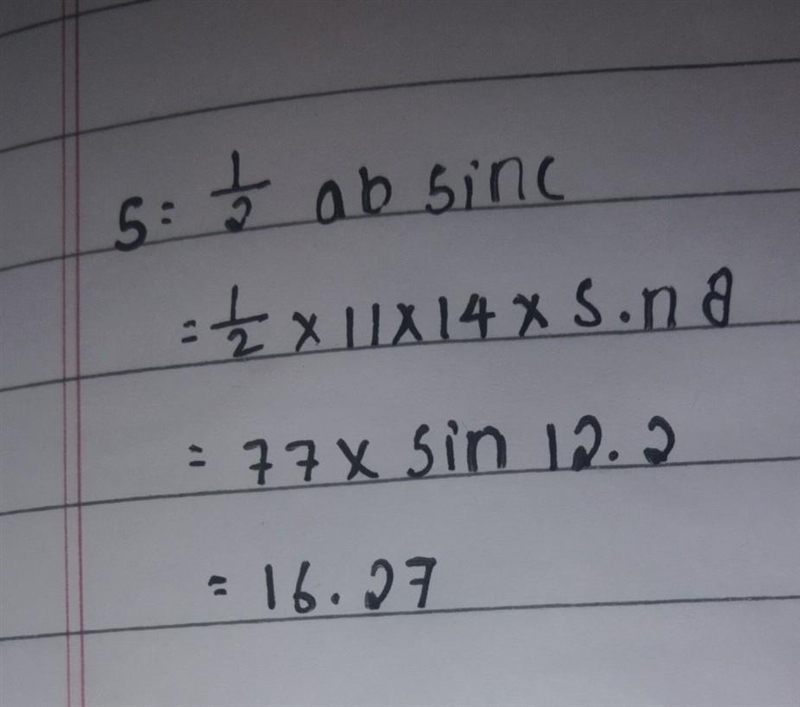 S = 1/2 ab sinc
= 1/2 × 11 × 14 × s.n θ
= 77 × sin 12.2
= 16.27